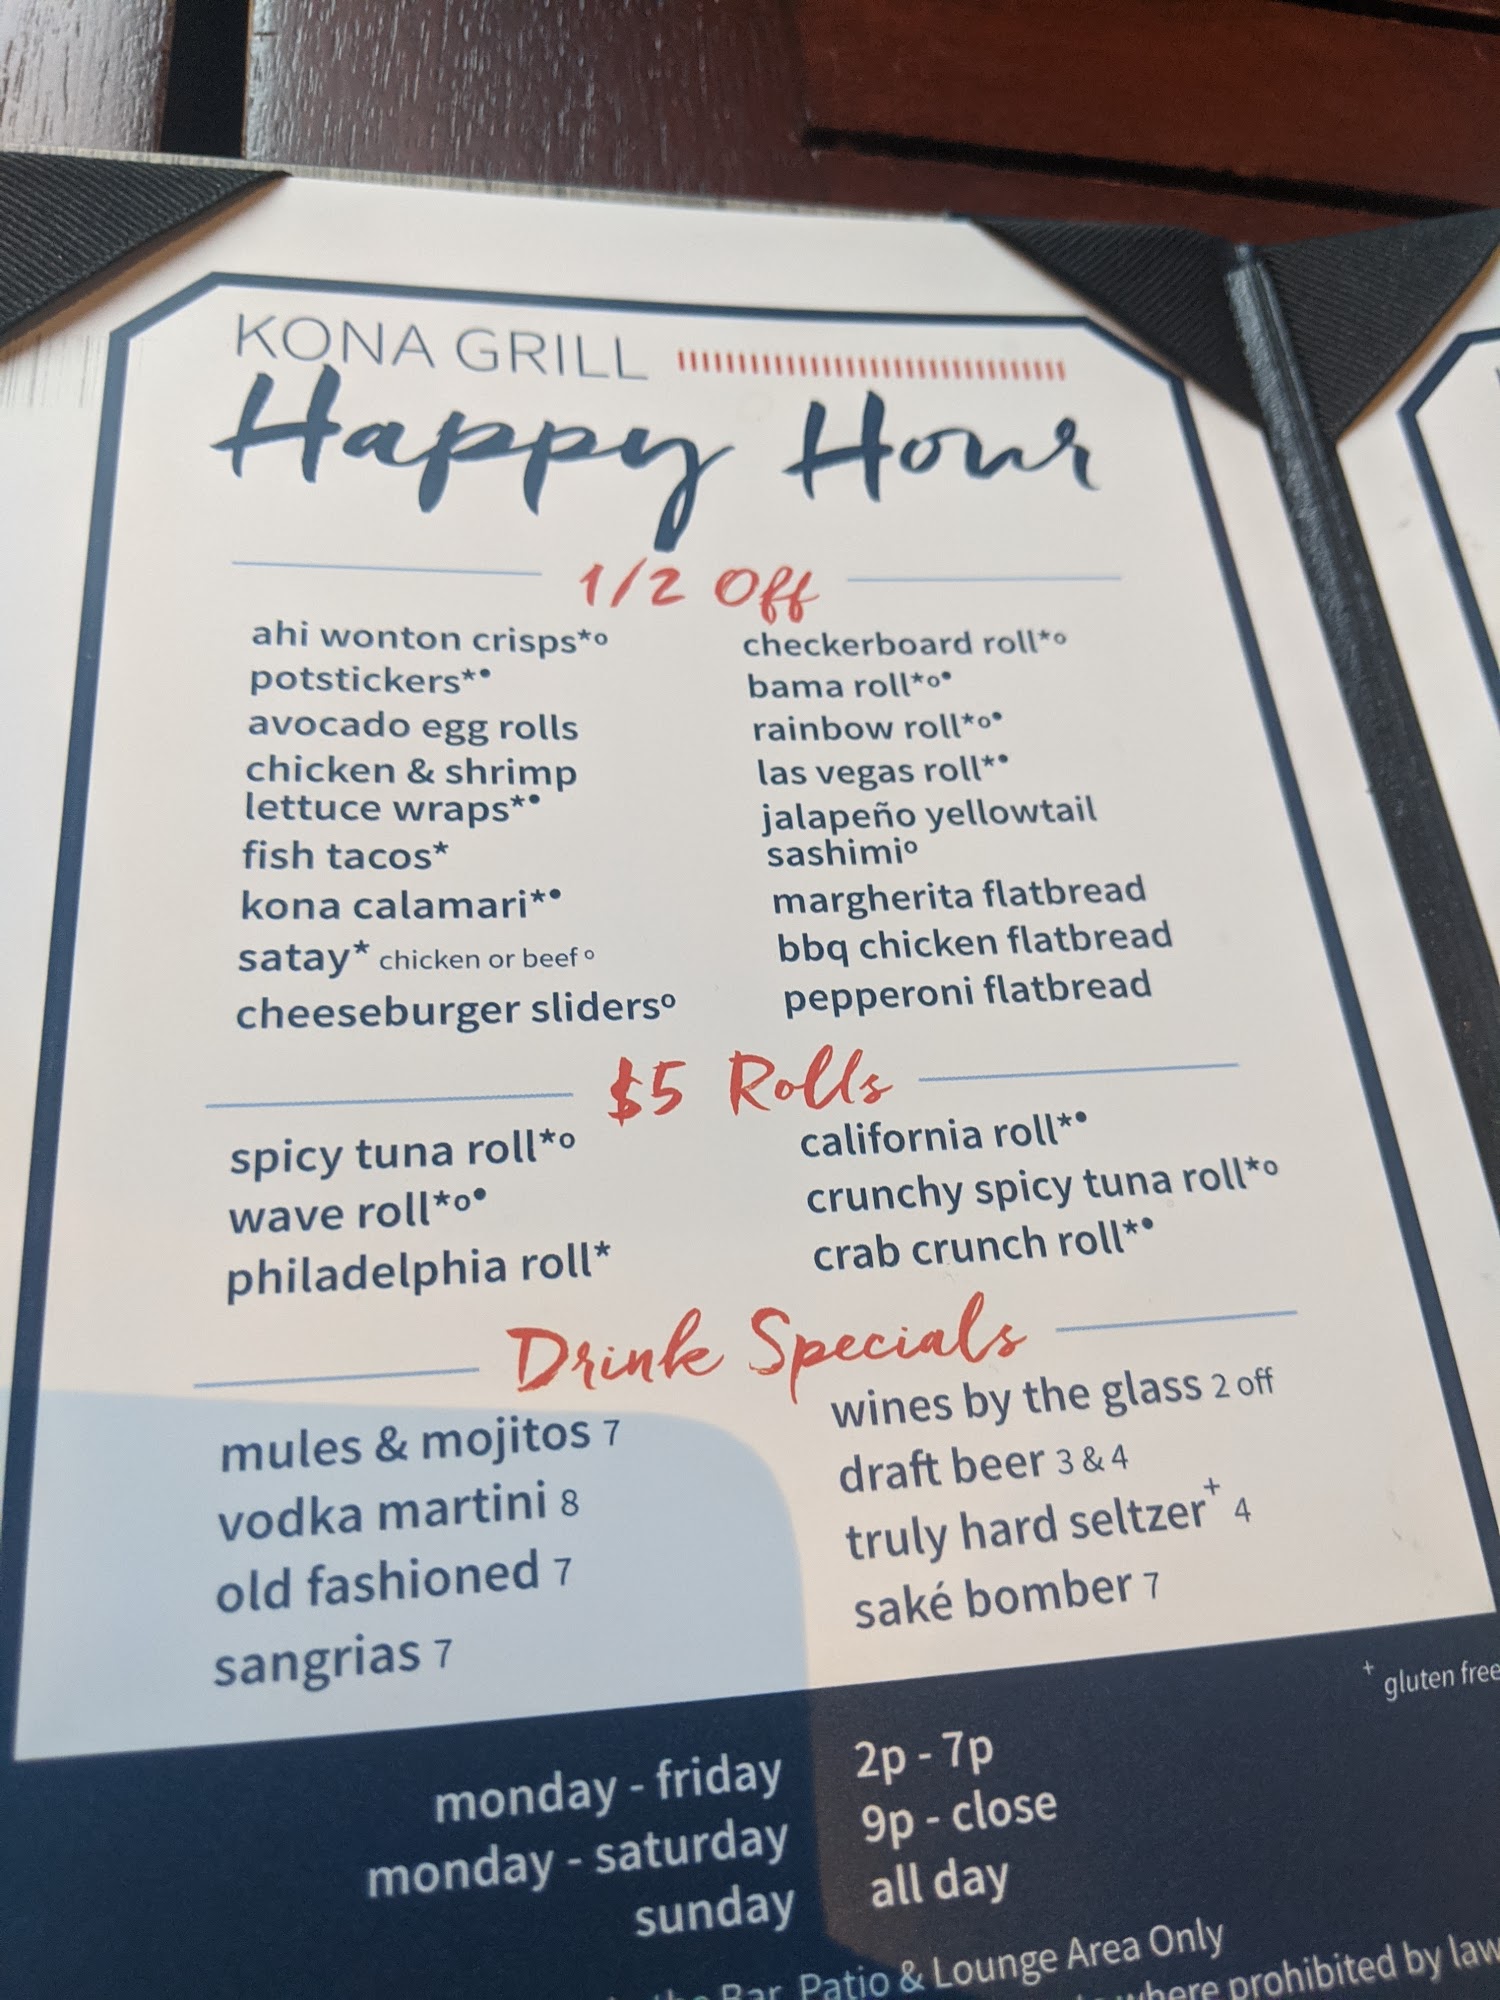 KONA GRILL
Happy Hour
1/2 Off
ahi wonton crisps*º
potstickers*•
avocado egg rolls
chicken & shrimp
lettuce wraps*•
fish tacos*
kona calamari*•
satay* chicken or beef º
cheeseburger slidersº
checkerboard roll*º
bama roll*º•
rainbow roll*º•
las vegas roll*•
jalapeño yellowtail
sashimiº
margherita flatbread
bbq chicken flatbread
pepperoni flatbread
$5 Rolls
spicy tuna roll*º
wave roll*º•
philadelphia roll*
california roll*•
crunchy spicy tuna roll*º
crab crunch roll*•
Drink Specials
mules & mojitos 7
vodka martini 8
old fashioned 7
sangrias 7
wines by the glass 2 off
draft beer 3 & 4
truly hard seltzer+ 4
saké bomber 7
+ gluten free
monday - friday 2p - 7p
monday - saturday 9p - close
sunday all day
the Bar, Patio & Lounge Area Only
where prohibited by law